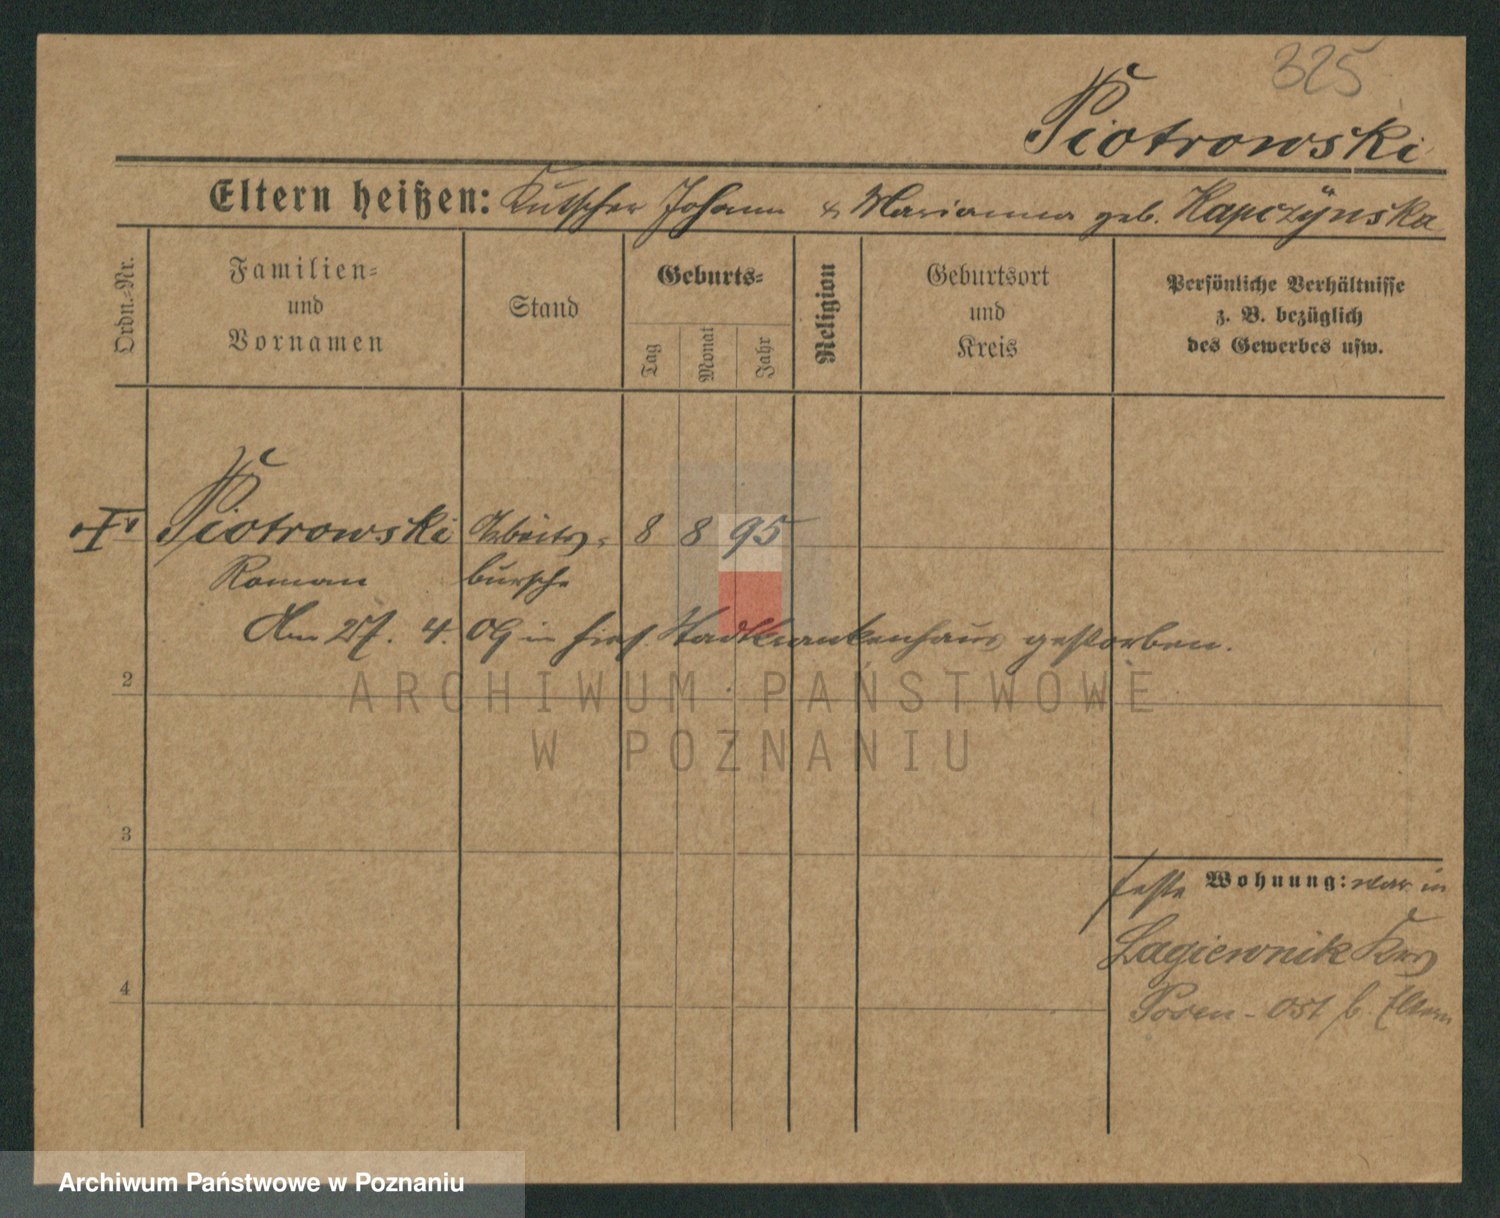 325
Piotrowski
Eltern heißen: Kutscher Johann & Marianna geb. Kapczÿnska
Ordn.-Nr.
Familien-
und
Vornamen
Stand
Geburts-
Tag
Monat
Jahr
Religion
Geburtsort
und
Kreis
Persönliche Verhältnisse
z. B. bezüglich
des Gewerbes usw.
Piotrowski Arbeits- 8 8 95
Roman bursche
Am 27. 4. 09 in hies. Stadtkrankenhaus gestorben.
2
ARCHIWUM PAŃSTWOWE
W POZNANIU
3
feste Wohnung: war in
Lagiewnik Krs
4
Posen-Ost b. Eltern
Archiwum Państwowe w Poznaniu